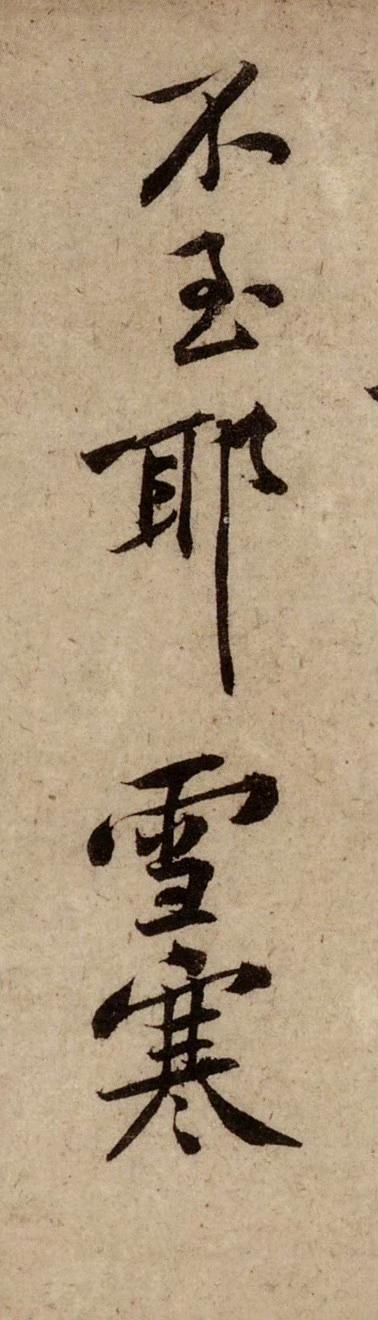 不至耶雪寒